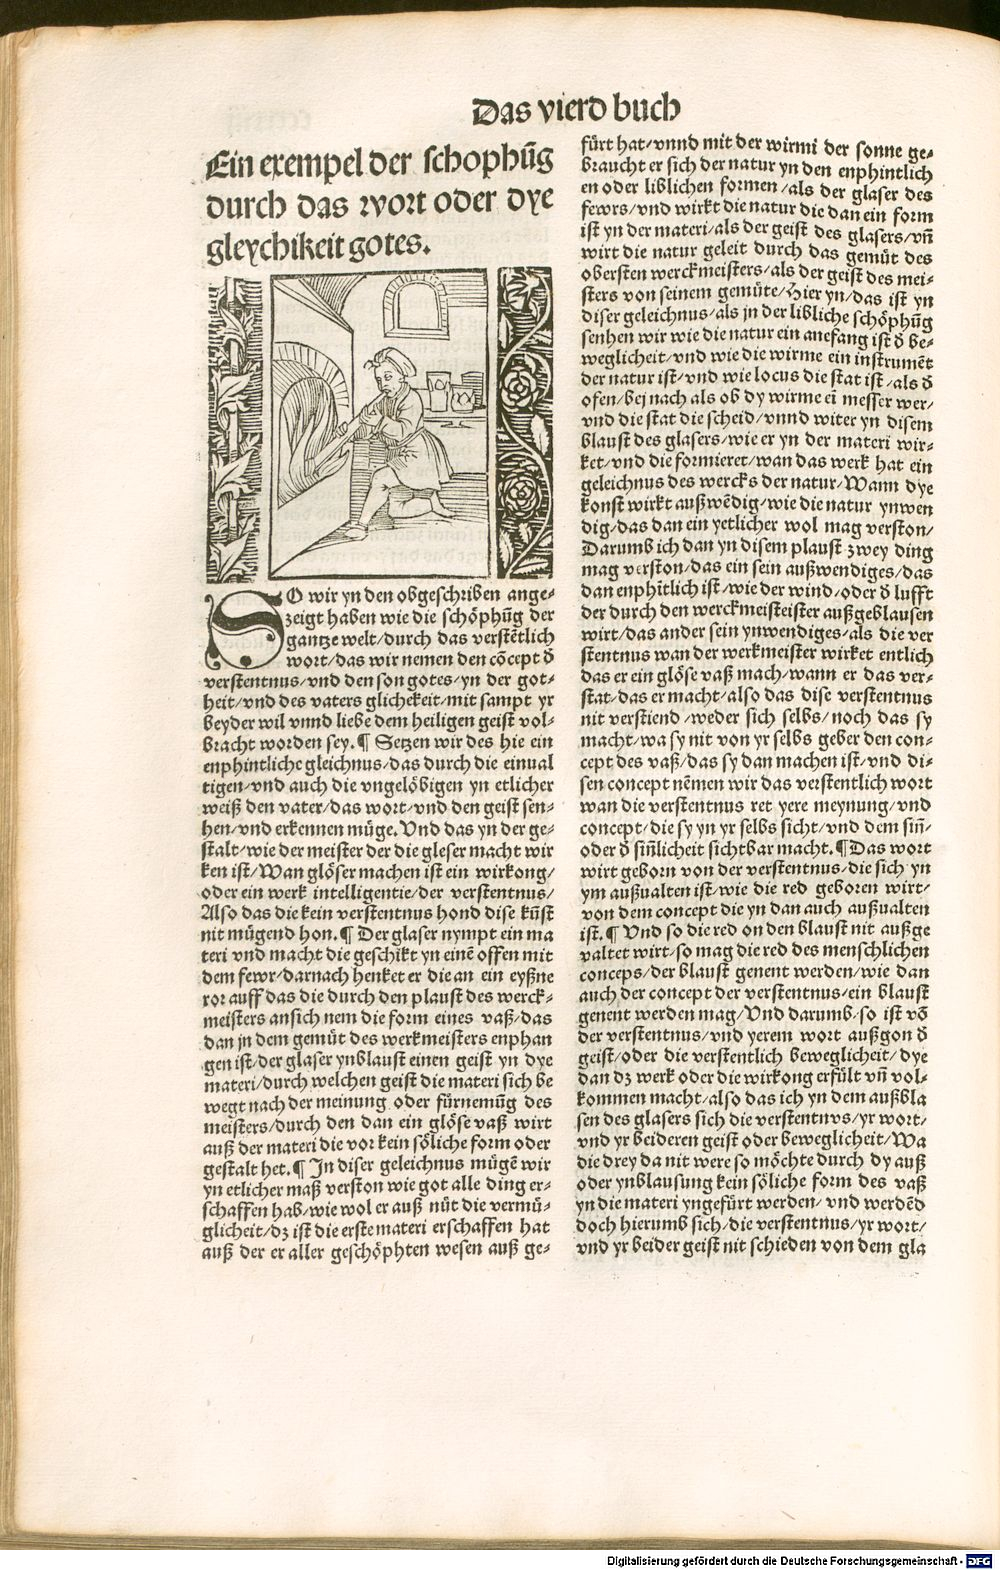 Das vierd buch
Ein exempel der schophūg
durch das wort oder dye
gleychikeit gotes.
SO wir yn den obgeschriben ange⸗
zeigt haben wie die schöphūg der
gantze welt/durch das verstētlich
wort/das wir nemen den cōcept d̄
verstentnus/vnd den son gotes/yn der got⸗
heit/vnd des vaters glichekeit/mit sampt yr
beyder wil vnnd liebe dem heiligen geist vol⸗
bracht worden sey.¶ Setzen wir des hie ein
enphintliche gleichnus/das durch die einual
tigen/vnd auch die vngelöbigen yn etlicher
weiß den vater/das wort/vnd den geist sen⸗
hen/vnd erkennen müge.Vnd das yn der ge⸗
stalt/wie der meister der die gleser macht wir
ken ist/Wan glöser machen ist ein wirkong/
oder ein werk intelligentie/der verstentnus/
Also das die kein verstentnus hond dise kūst
nit mügend hon.¶ Der glaser nympt ein ma
teri vnd macht die geschikt yn einē offen mit
dem fewr/darnach henket er die an ein eyßne
ror auff das die durch den plaust des werck⸗
meisters ansich nem die form eines vaß/das
dan jn dem gemüt des werkmeisters enphan
gen ist/der glaser ynblaust einen geist yn dye
materi/durch welchen geist die materi sich be
wegt nach der meinung oder fürnemūg des
meisters/durch den dan ein glöse vaß wirt
auß der materi die vor kein söliche form oder
gestalt het.¶ Jn diser geleichnus mügē wir
yn etlicher maß verston wie got alle ding er⸗
schaffen hab/wie wol er auß nüt die vermü⸗
glicheit/dz ist die erste materi erschaffen hat
auß der er aller geschöphten wesen auß ge⸗
fürt hat/vnnd mit der wirmi der sonne ge⸗
braucht er sich der natur yn den enphintlich
en oder liblichen formen/als der glaser des
fewrs/vnd wirkt die natur die dan ein form
ist yn der materi/als der geist des glasers/vn̄
wirt die natur geleit durch das gemüt des
obersten werckmeisters/als der geist des mei⸗
sters von seinem gemüte/Hier yn/das ist yn
diser geleichnus/als jn der libliche schöphūg
senhen wir wie die natur ein anefang ist d̄ be⸗
weglicheit/vnd wie die wirme ein instrumēt
der natur ist/vnd wie locus die stat ist/als d̄
ofen/bej nach als ob dy wirme ei̅ messer wer/
vnd die stat die scheid/vnnd witer yn disem
blaust des glasers/wie er yn der materi wir⸗
ket/vnd die formieret/wan das werk hat ein
geleichnus des wercks der natur/Wann dye
konst wirkt außwēdig/wie die natur ynwen
dig/das dan ein yetlicher wol mag verston/
Darumb ich dan yn disem plaust zwey ding
mag verston/das ein sein außwendiges/das
dan enphītlich ist/wie der wind/oder d̄ lufft
der durch den werckmeisteister außgeblausen
wirt/das ander sein ynwendiges/als die ver
stentnus wan der werkmeister wirket entlich
das er ein glöse vaß mach/wann er das ver⸗
stat/das er macht/also das dise verstentnus
nit verstiend/weder sich selbs/noch das sy
macht/wa sy nit von yr selbs geber den con⸗
cept des vaß/das sy dan machen ist/vnd di⸗
sen concept nēmen wir das verstentlich wort
wan die verstentnus ret yere meynung/vnd
concept/die sy yn yr selbs sicht/vnd dem sin̄⸗
oder d̄ sin̄licheit sichtbar macht.¶Das wort
wirt geborn von der verstentnus/die sich yn
ym außualten ist/wie die red geboren wirt/
von dem concept die yn dan auch außualten
ist.¶ Vnd so die red on den blaust nit außge
valtet wirt/so mag die red des menschlichen
conceps/der blaust genent werden/wie dan
auch der concept der verstentnus/ein blaust
genent werden mag/Vnd darumb/so ist vō
der verstentnus/vnd yerem wort außgon d̄
geist/oder die verstentlich beweglicheit/dye
dan dz werk oder die wirkong erfült vn̄ vol⸗
kommen macht/also das ich yn dem außbla
sen des glasers sich die verstentnvs/yr wort/
vnd yr beideren geist oder beweglicheit/Wa
die drey da nit were so möchte durch dy auß
oder ynblausung kein söliche form des vaß
yn die materi yngefürt werden/vnd werdēd
doch hierumb sich/die verstentnus/yr wort/
vnd yr beider geist nit schieden von dem gla
Digitalisierung gefördert durch die Deutsche Forschungsgemeinschaft - DFG